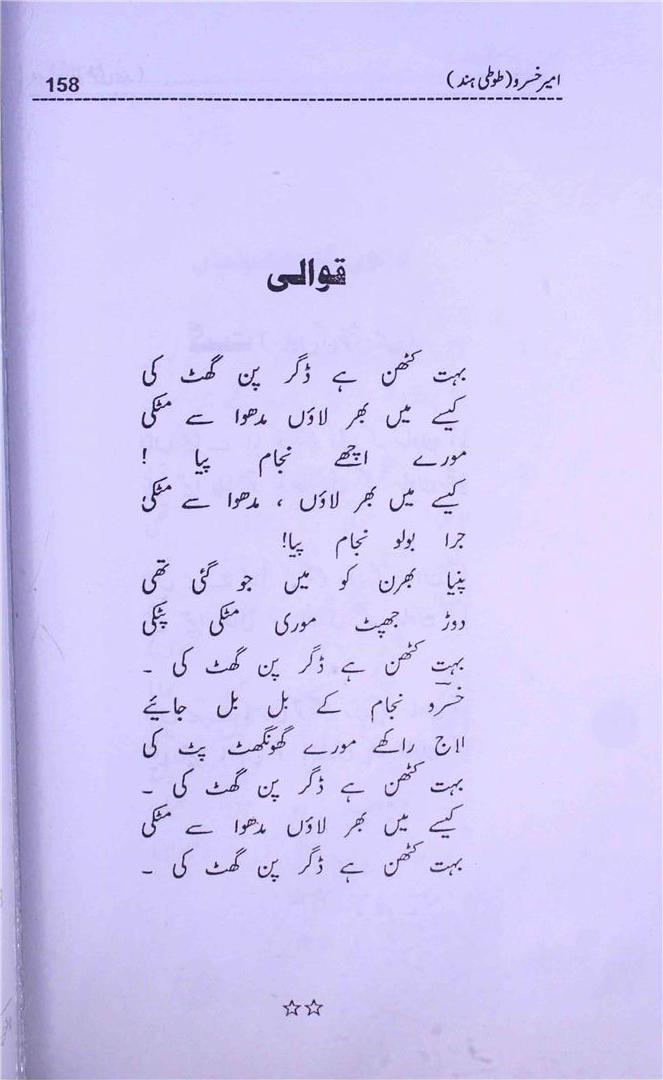 امیر خسرو (طوطی ہند)
158
قوالی
بہت کٹھن ہے ڈگر پن گھٹ کی
کیسے میں بھر لاؤں مدھوا سے مٹکی
مورے اچھے نجام پیا !
کیسے میں بھر لاؤں ، مدھوا سے مٹکی
جرا بولو نجام پیا!
پنیا بھرن کو میں جو گئی تھی
دوڑ جھپٹ موری مٹکی پٹکی
بہت کٹھن ہے ڈگر پن گھٹ کی ۔
خسروؔ نجام کے بل بل جائیے
لاج راکھے مورے گھونگھٹ پٹ کی
بہت کٹھن ہے ڈگر پن گھٹ کی ۔
کیسے میں بھر لاؤں مدھوا سے مٹکی
بہت کٹھن ہے ڈگر پن گھٹ کی ۔
☆☆